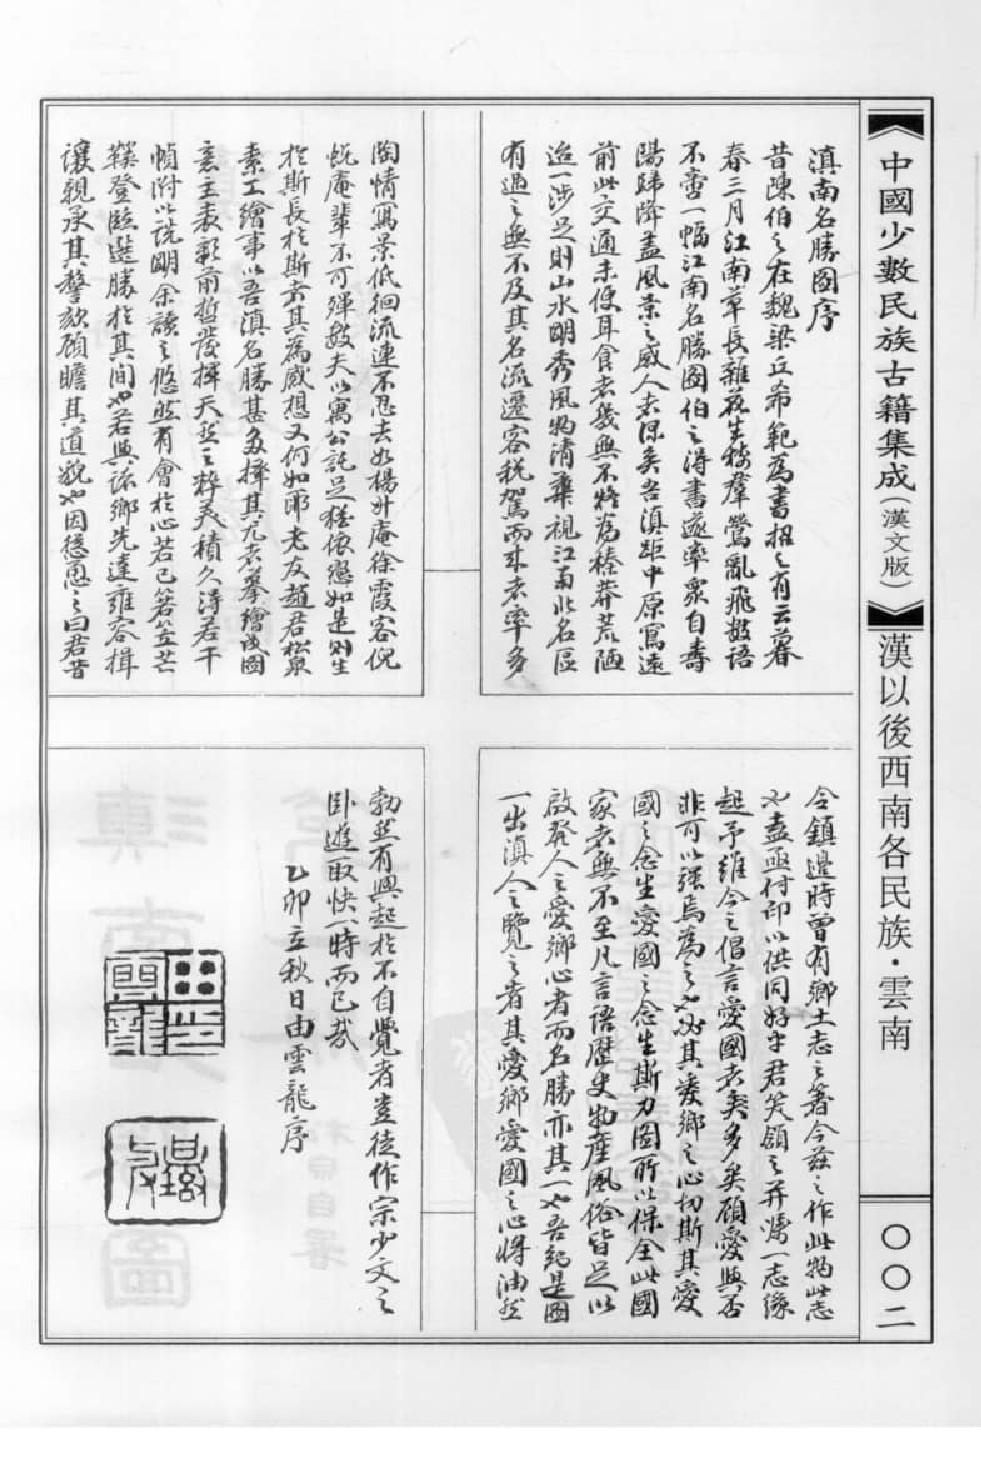 中國少數民族古籍集成（漢文版）
漢以後西南各民族·雲南
〇〇二
滇南名勝圖序
昔陳伯之在魏梁丘希範為書招之有云暮
春三月江南草長雜花生樹羣鶯亂飛數語
不啻一幅江南名勝圖伯之得書遂率衆自壽
陽歸降蓋風景之感人者深矣吾滇距中原寫遠
前此交通未便耳食者幾無不特為榛莽荒陋
迨一涉足則山水明秀風物清華視江南此名區
有過之無不及其名流遷客稅駕而來者率多
陶情寫景低徊流連不忍去如楊升庵徐霞客倪
蛻庵輩不可殫數夫以寓公託足猶依戀如是則生
於斯長於斯者其為感想又何如耶老友趙君松泉
素工繪事以吾滇名勝甚多擇其尤者摹繪成圖
意主表彰前哲發揮天然之粹美積久得若干
幀附以說明余讀之悠然有會於心若已箬笠芒
鞵登臨選勝於其間也若與諸鄉先達雍容揖
讓親承其謦欬顧瞻其道貌也因慫恿之曰君昔
令鎮邊時曾有鄉土志之著今茲之作此物此志
也盍亟付印以供同好乎君笑頷之并慿一志緣
起予維今之倡言愛國者矣多矣顧愛與否
非可以強焉為之也必其愛鄉之心切斯其愛
國之念生愛國之念生斯力圖所以保全此國
家者無不至凡言語歷史物產風俗皆足以
啟發人之愛鄉心者而名勝亦其一也吾知是圖
一出滇人之覽之者其愛鄉愛國之心將油然
勃然有興起於不自覺者豈徒作宗少文之
臥遊取快一時而已哉
乙卯立秋日由雲龍序